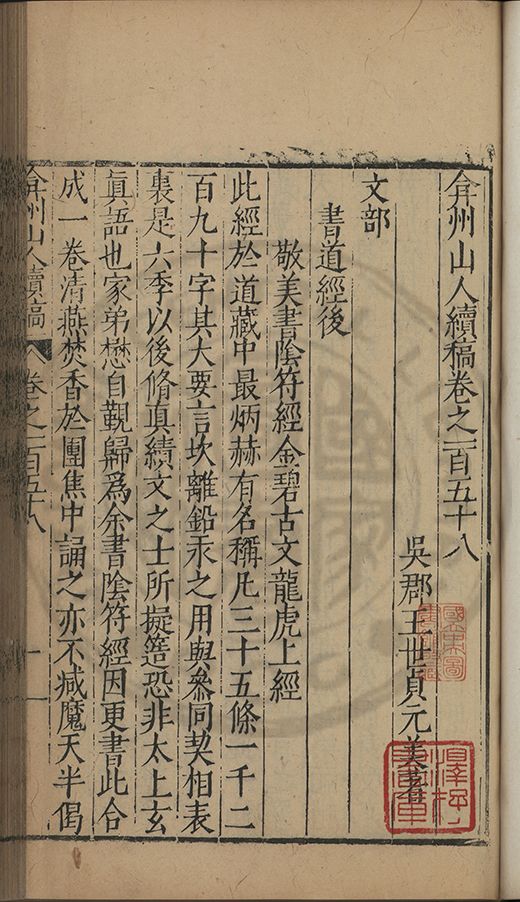 弇州山人續稿卷之一百五十八
吳郡王世貞元美著
文部
書道經後
敬美書陰符經金碧古文龍虎上經
此經於道藏中最炳赫有名稱凡三十五條一千二
百九十字其大要言坎離鉛汞之用與參同契相表
裏是六季以後脩真績文之士所擬簉恐非太上玄
眞語也家弟懋自覲歸爲余書陰符經因更書此合
成一卷清燕焚香於團焦中誦之亦不减魔天半偈
弇州山人續稿 卷之一百五十八 一